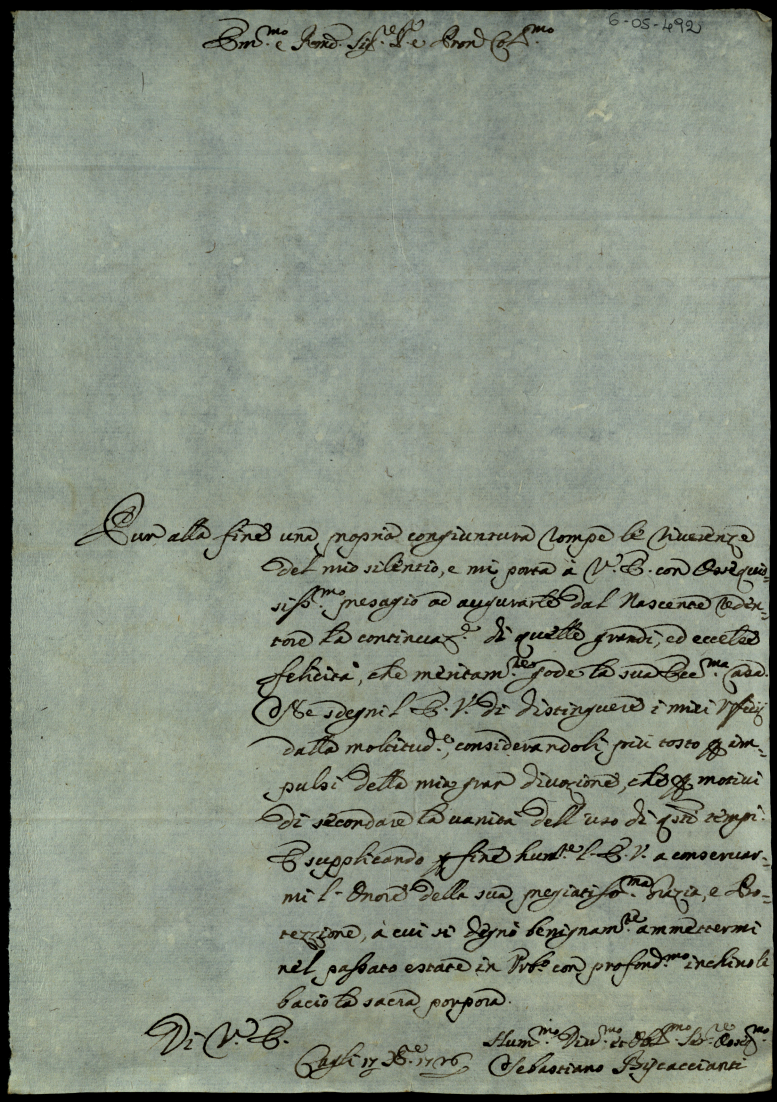 6-05-492
Em.mo e Rmo. Sig.re P.re e Pron Col.mo
Pur alla fine una propria congiuntura rompe le riverenze
del mio silentio, e mi porta à V.E. con ossequio-
siss.mo presagio ad augurarle dal Nascente Reden-
tore la continuaz.e di quelle grandi, ed eccelse
felicità, che meritam.te gode la sua Ecc.ma Casa.
Ne sdegni l'E.V. di distinguere i miei Vfficij
dalla moltitud.e, considerandoli più tosto p im-
pulsi della mia gran divozione, che p motivi
di secondare la vanità dell'uso di qsti tempi.
E supplicando p fine hum.te l'E.V. a conservar-
mi l'onore della sua pregiatiss.ma Grazia, e Pro-
tezzione, à cui si degnò benignam.te ammettermi
nel passato estate in Urb.o con profond.mo inchino le
bacio la sacra porpora.
Di V.E.
Cagli 17 Xbre 1726
Hum.mo Div.mo et Obl.mo Ser.re Osseq.mo
Sebastiano